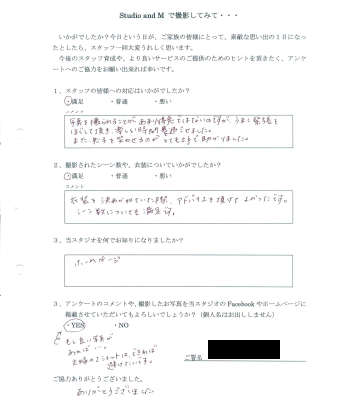 Studio and M で撮影してみて・・・
いかがでしたか？今日という日が、ご家族の皆様にとって、素敵な思い出の１日になっ
たとしたら、スタッフ一同大変うれしく思います。
今後のスタッフ育成や、より良いサービスのご提供のためのヒントを頂きたく、アンケ
ートへのご協力をお願い出来れば幸いです。
１、スタッフの皆様への対応はいかがでしたか？
・満足 ・普通 ・悪い
コメント
写真を撮られることがあまり得意ではないのですが、うまく緊張を
ほぐして頂き、楽しい時間を過ごせました。
また、息子を笑わせるのがとても上手で助かりました。
２、撮影されたシーン数や、衣装についていかがでしたか？
・満足 ・普通 ・悪い
コメント
衣装を決めかねていた時、アドバイスを頂けてよかったです。
シーン数についても満足です。
３、当スタジオを何でお知りになりましたか？
ホームページ
３、アンケートのコメントや、撮影したお写真を当スタジオの Facebook やホームページに
掲載させていただいてもよろしいでしょうか？（個人名はお出ししません）
・YES ・NO
もし良い写真が
あれば…。
夫婦の2ショットは、できれば
避けたいです。
ご署名
ご協力ありがとうございました。
ありがとうございました